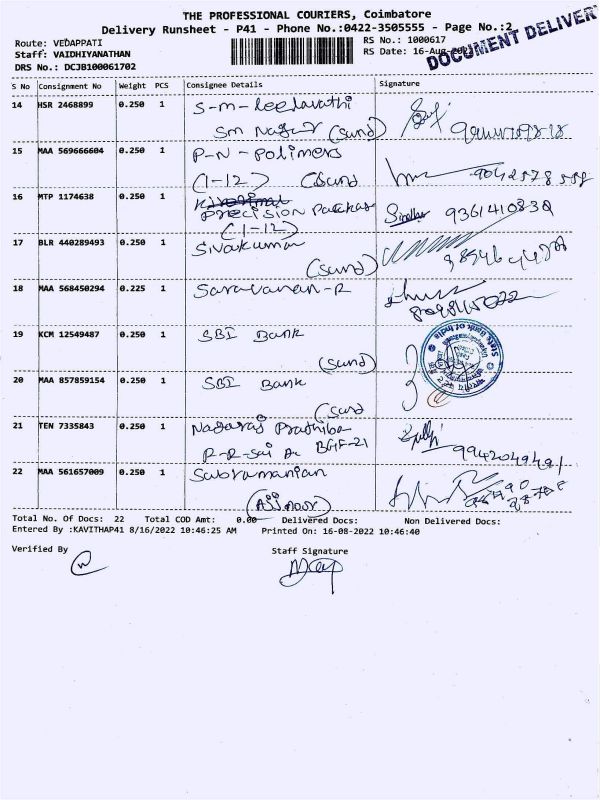 THE PROFESSIONAL COURIERS, Coimbatore
Delivery Runsheet - P41 - Phone No.:0422-3505555 - Page No.:2
DOCUMENT DELIVER
Route: VEDAPPATI
RS No.: 1000617
Staff: VAIDHIYANATHAN
RS Date: 16-Aug-2022
DRS No.: DCJB100061702
S No Consignment No Weight PCS Consignee Details Signature
14 HSR 2468899 0.250 1 S-m-Leelavathi
Sm Nagar (Sund)
15 MAA 569666604 0.250 1 P-N-Polimers
(1-12) (Sund
16 MTP 1174638 0.250 1
Precision Package 9361410832
(1-12)
17 BLR 440289493 0.250 1 Sivakumar
(Sund)
18 MAA 568450294 0.225 1 Saravanan-R
19 KCM 12549487 0.250 1 SBI Bank
(Sund)
State Bank of India
20 MAA 857859154 0.250 1 SBI Bank
(Sund
21 TEN 7335843 0.250 1 Nagaraj Prathiba
R-R-Sai BGF-21 9942049491
22 MAA 561657009 0.250 1 Subramanian
Total No. Of Docs: 22 Total COD Amt: 0.00 Delivered Docs: Non Delivered Docs:
Entered By :KAVITHAP41 8/16/2022 10:46:25 AM Printed On: 16-08-2022 10:46:40
Verified By Staff Signature